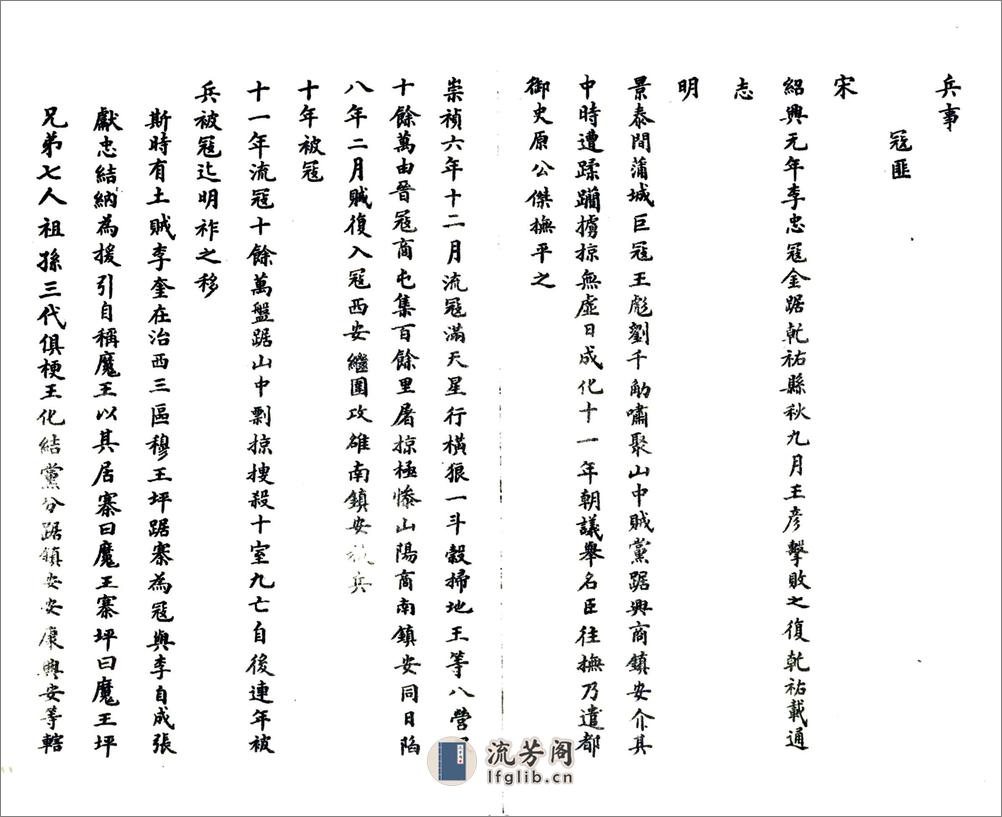 兵事
寇匪
宋
紹興元年李忠寇金踞乾祐縣秋九月王彥擊敗之復乾祐載通
志
明
景泰間蒲城巨寇王彪劉千觔嘯聚山中賊黨踞興商鎮安介其
中時遭蹂躪擄掠無虛日成化十一年朝議舉名臣往撫乃遣都
御史原公傑撫平之
崇禎六年十二月流寇滿天星行橫狼一斗穀掃地王等八營
十餘萬由晉寇商屯集百餘里屠掠極慘山陽商南鎮安同日陷
八年二月賊復入寇西安繼圍攻雒南鎮安兵
十年被寇
十一年流寇十餘萬盤踞山中剽掠搜殺十室九亡自後連年被
兵被寇迄明祚之移
斯時有土賊李奎在治西三區穆王坪踞寨為寇與李自成張
獻忠結納為援引自稱魔王以其居寨曰魔王寨坪曰魔王坪
兄弟七人祖孫三代俱梗王化結黨分踞鎮安安康興安等轄
流芳阁
lfglib.cn